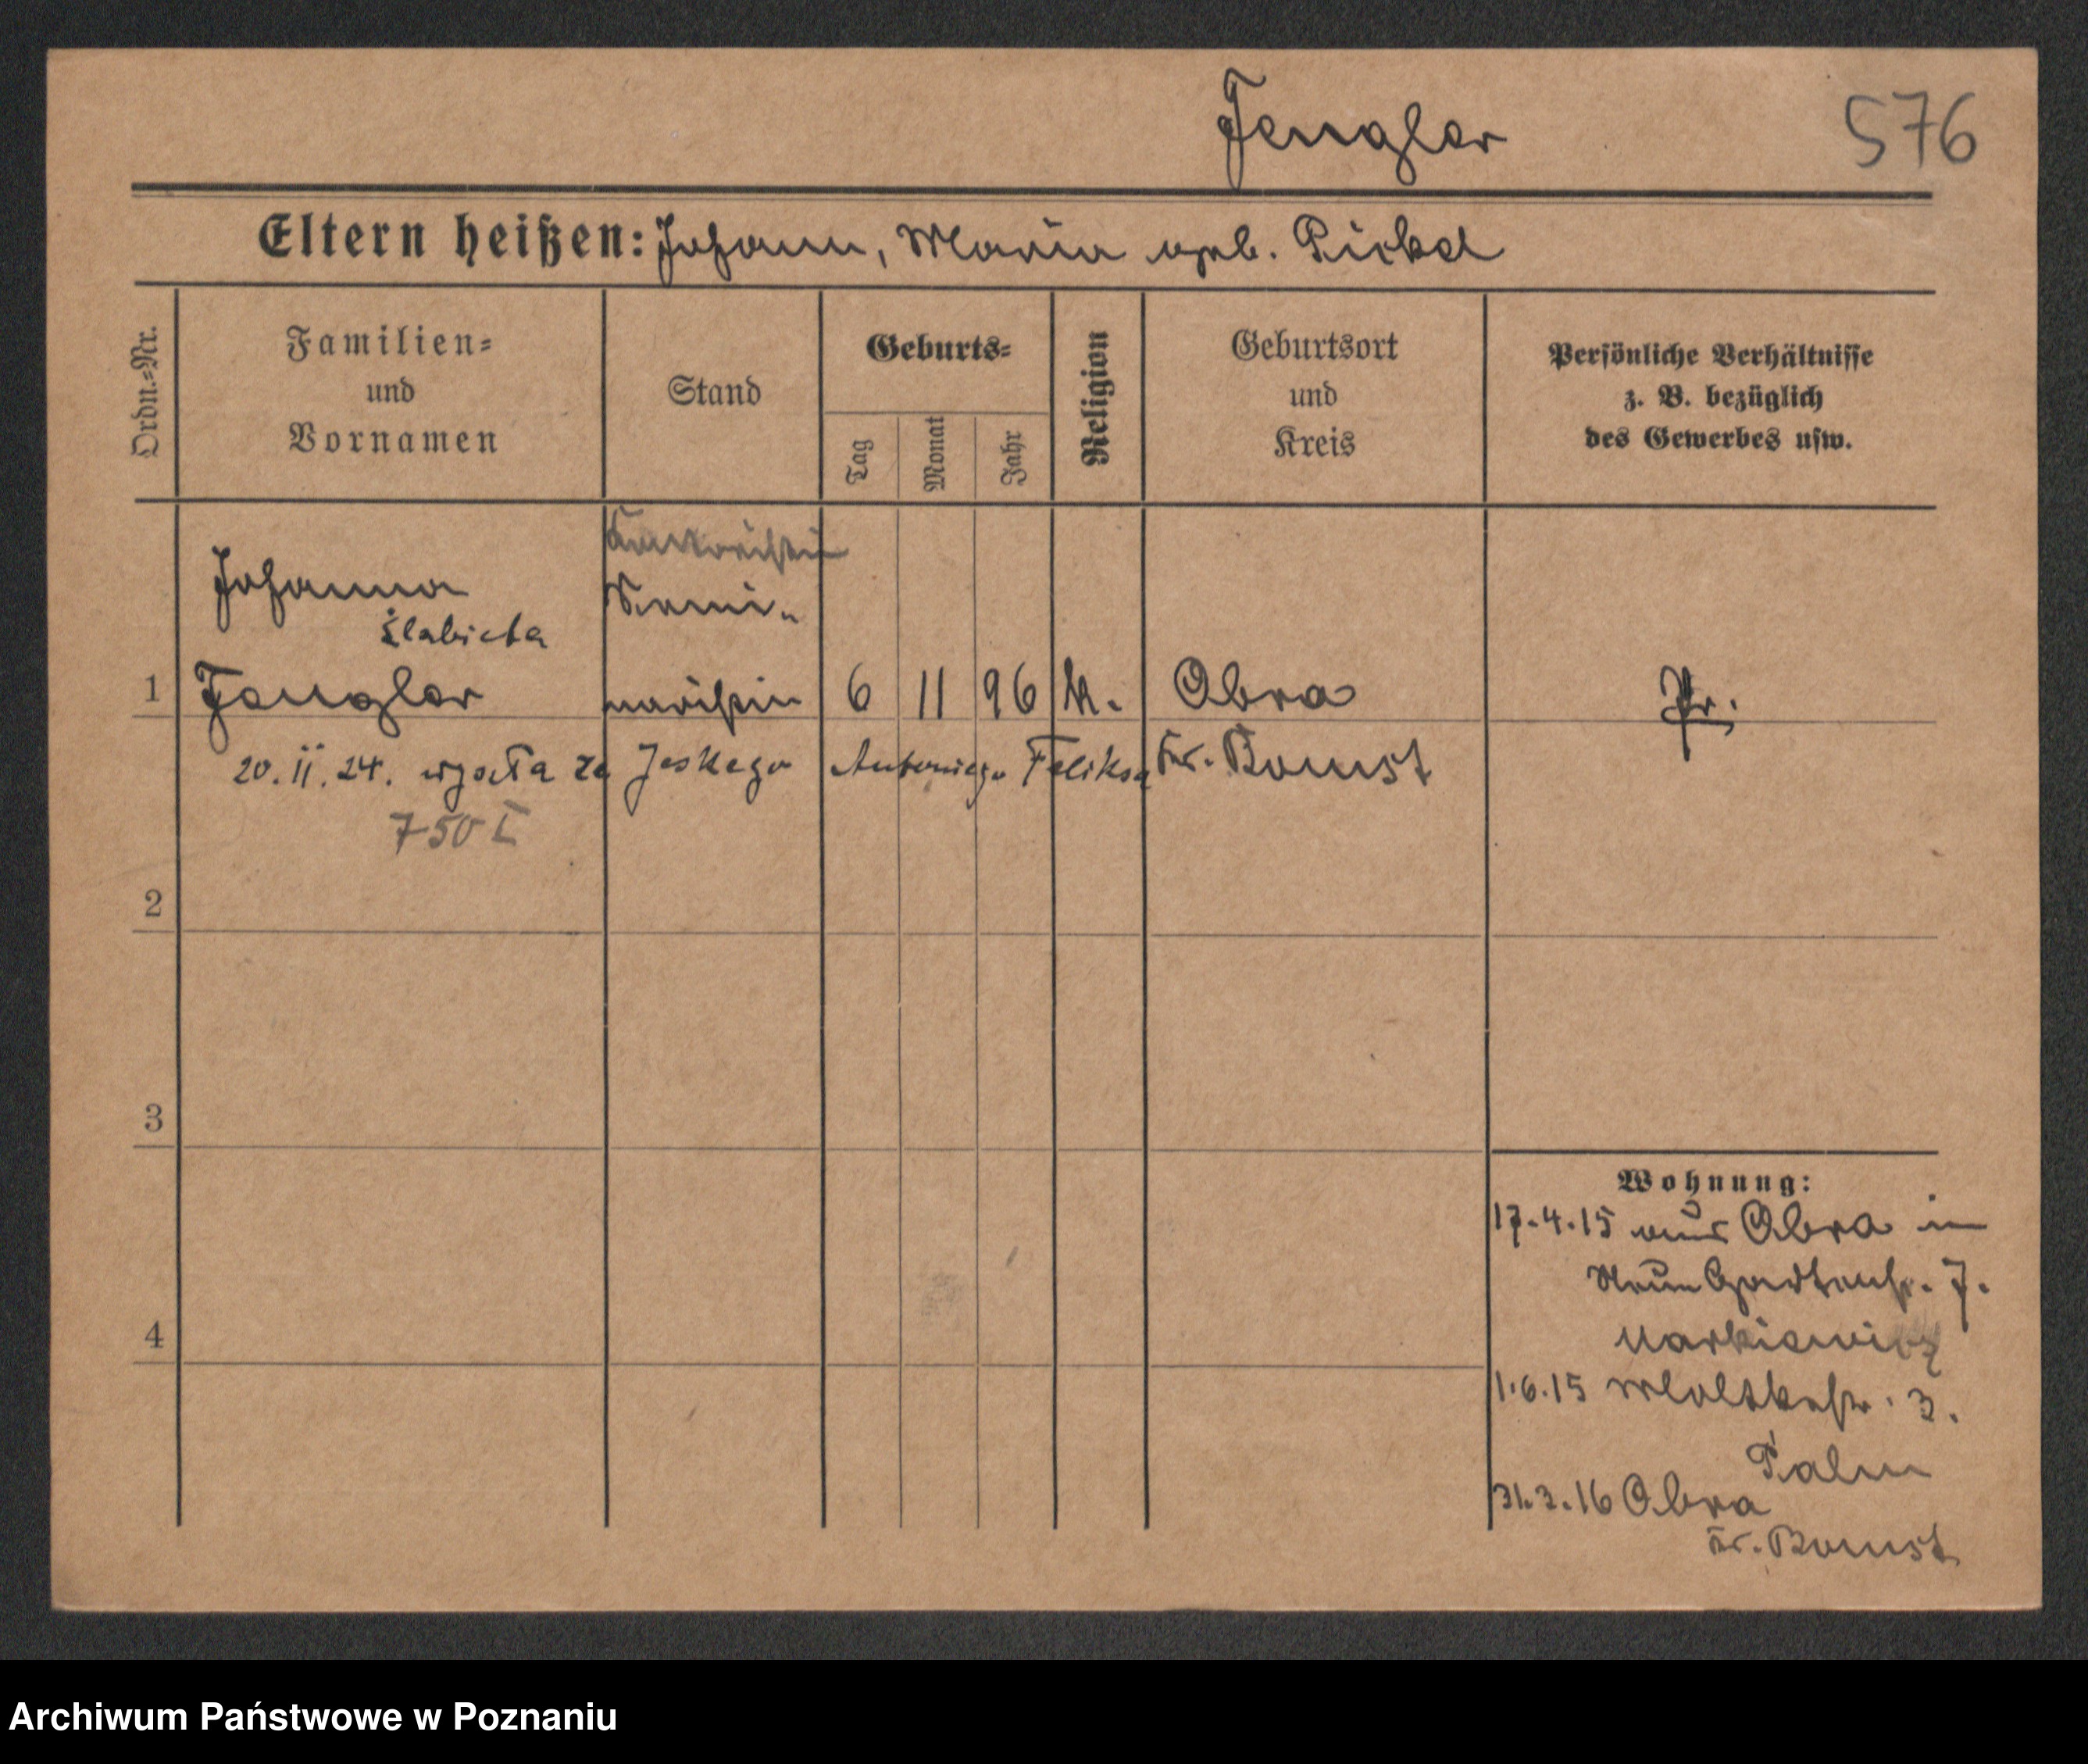 Fengler
576
Eltern heißen: Johann, Maria geb.
Ordn.-Nr.
Familien-
und
Vornamen
Stand
Geburts-
Tag
Monat
Jahr
Religion
Geburtsort
und
Kreis
Persönliche Verhältnisse
z. B. bezüglich
des Gewerbes usw.
Johanna
Elżbieta
Semi-
1 Fengler naristin 6 11 96 k. Obra Pr.
Kr. Bomst
20.II.24. wyszła za Jeskego Antoniego Feliksa
750
2
3
4
Wohnung:
17.4.15 aus Obra in
Neue Gartenstr. 7.
Markiewicz
1.6.15 Moltkestr. 3.
Palm
31.3.16 Obra
Kr. Bomst
Archiwum Państwowe w Poznaniu